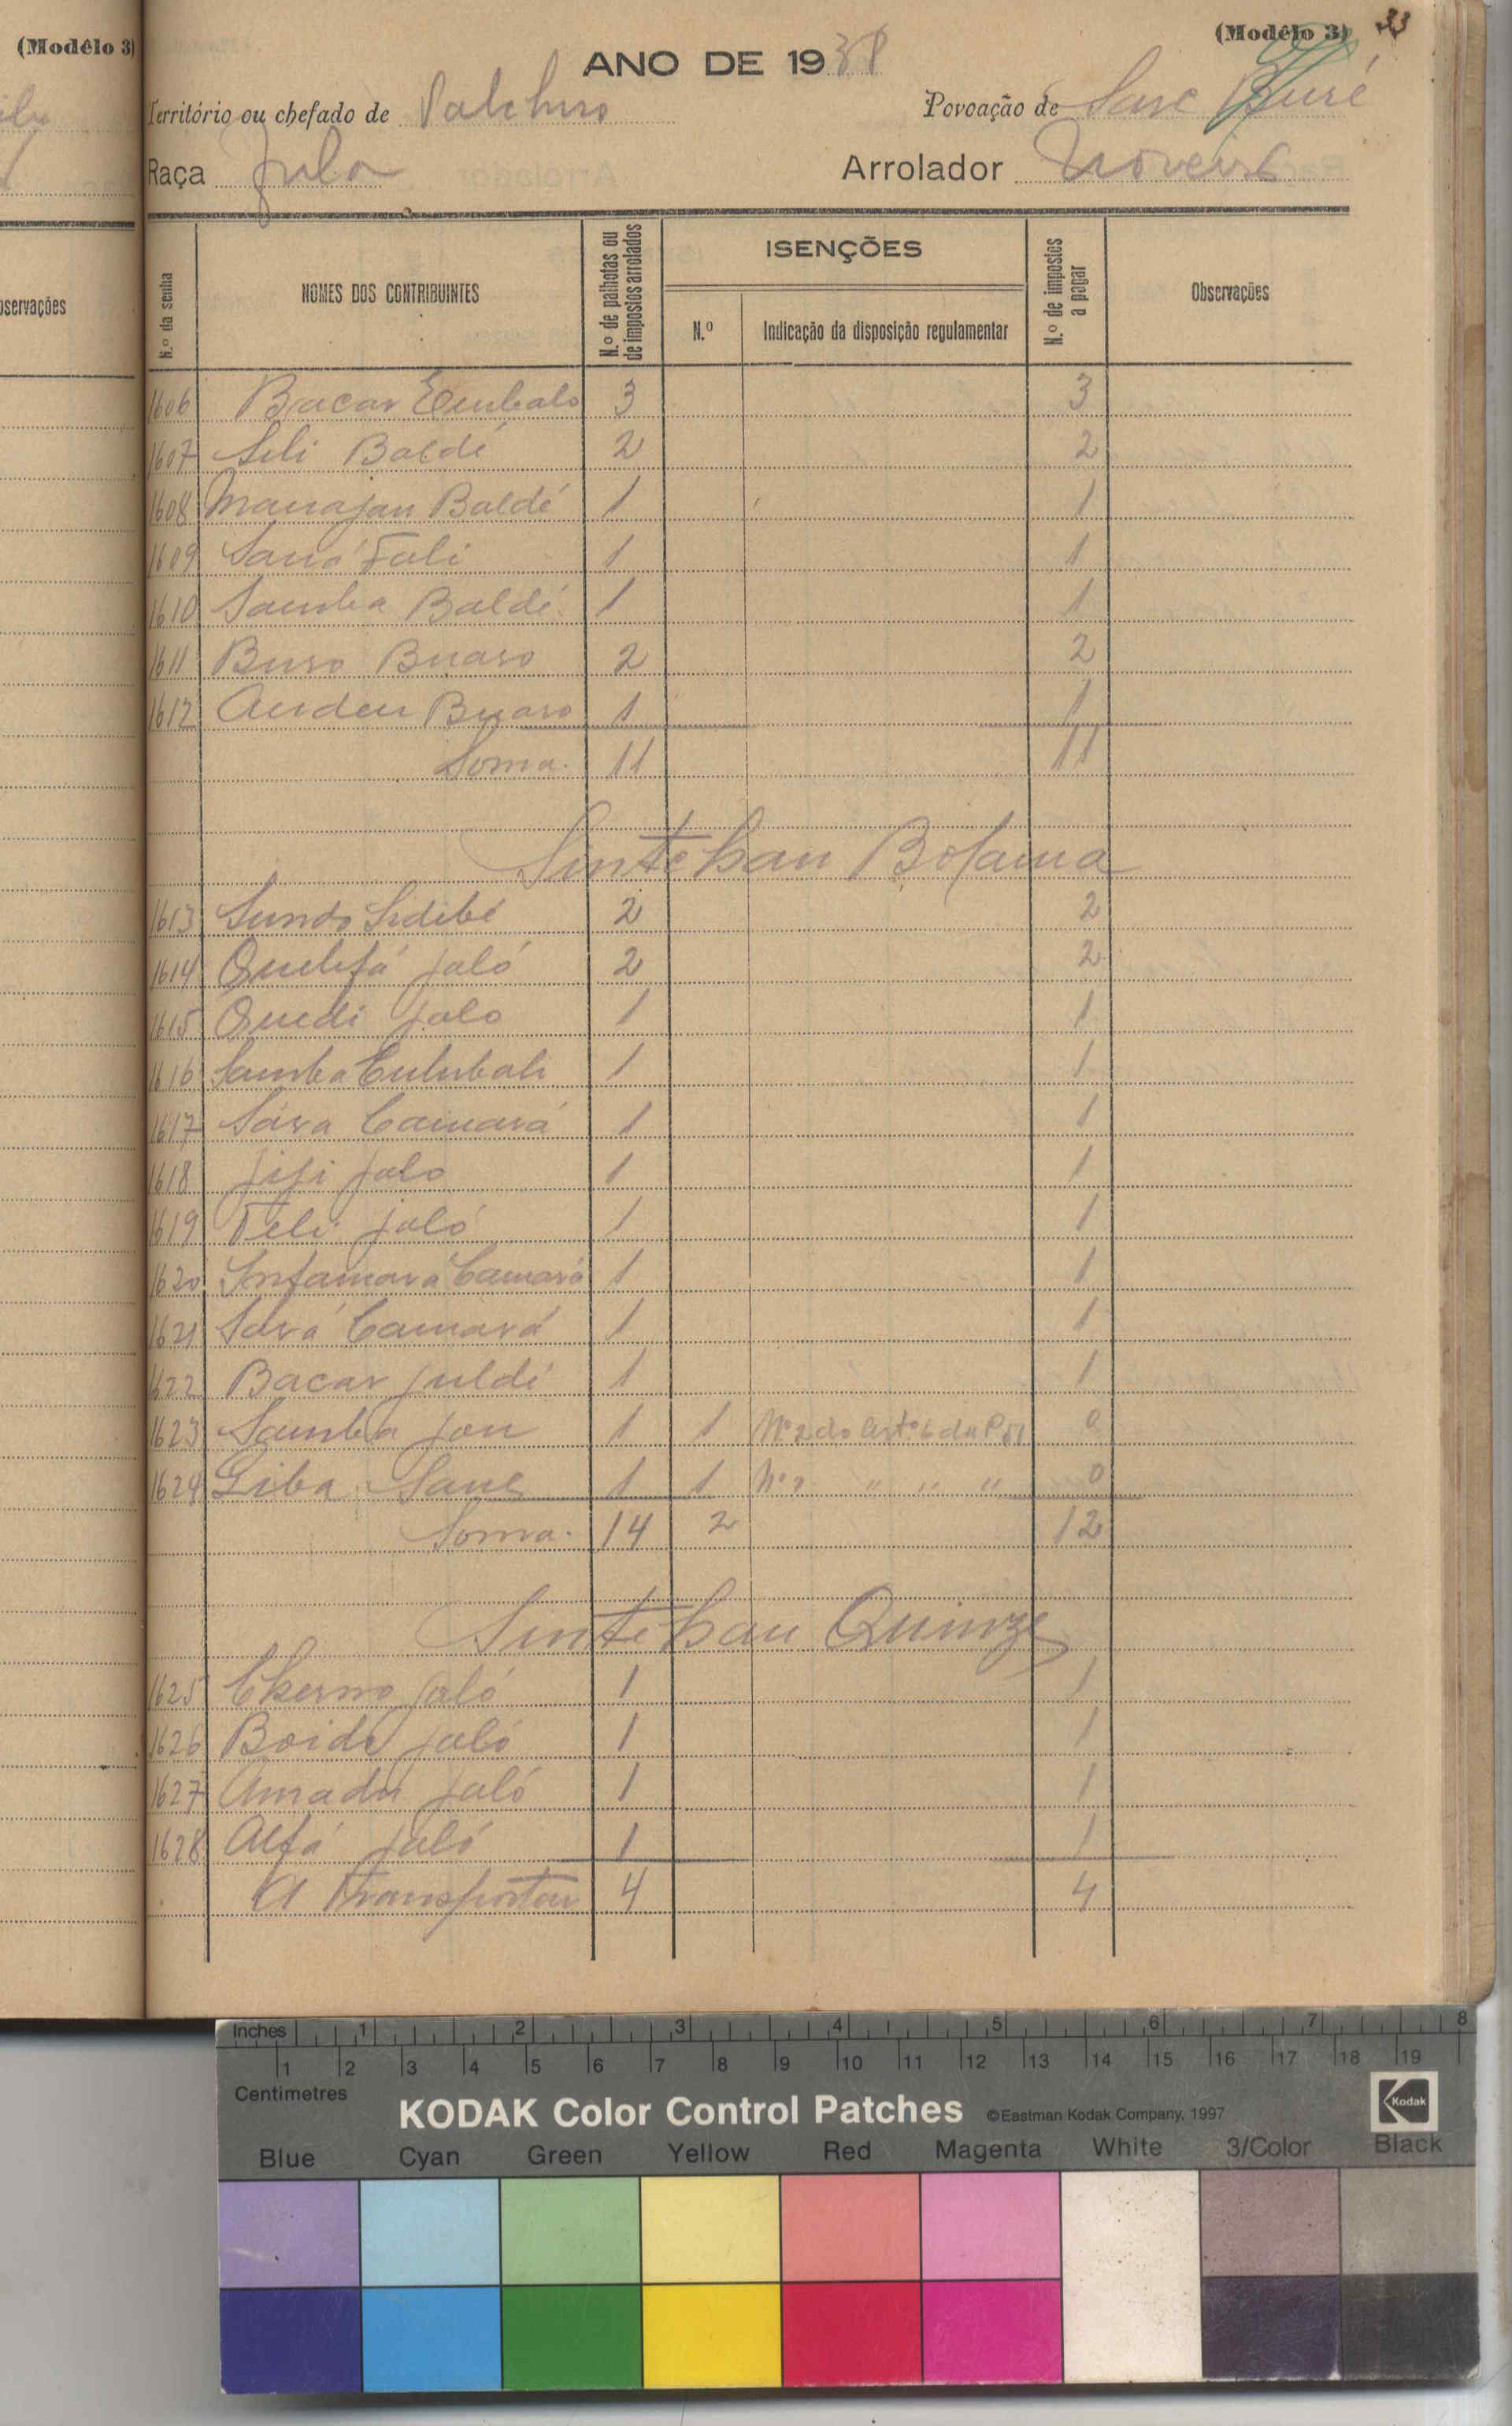 (Modêlo 3)
(Modêlo 3) 33
ANO DE 1938
Território ou chefado de Patchiro Povoação de Sare Buré
Raça Fula Arrolador
bservações
N.º da senha
NOMES DOS CONTRIBUINTES
N.º de palhotas ou de impostos arrolados
ISENÇÕES
N.º
Indicação da disposição regulamentar
N.º de impostos a pagar
Observações
1606 Bacar Embaló 3 3
1607 Seli Baldé 2 2
1608 Manajan Baldé 1 1
1609 Saná Fali 1 1
1610 Samba Baldé 1 1
1611 Buro Buaro 2 2
1612 Auden Buaro 1 1
Soma 11 11
Sintchan Bolama
1613 Sundo Sidibé 2 2
1614 Quebfá Jaló 2 2
1615 Quedi Jalo 1 1
1616 Samba Culubali 1 1
1617 Sára Camará 1 1
1618 Jiji Jalo 1 1
1619 Teli Jaló 1 1
1620 Infamará Camará 1 1
1621 Sará Camará 1 1
1622 Bacar Juldé 1 1
1623 Samba Jau 1 1 Nº 2 do Artº 6 do 0
1624 Liba Sane 1 1 Nº 2 " " " 0
Soma 14 2 12
Sintchan Quinze
1625 Cherno Jaló 1 1
1626 Boide Jaló 1 1
1627 Amadu Jaló 1 1
1628 Alfá Jaló 1 1
A Transportar 4 4
Inches 1 2 3 4 5 6 7 8
1 2 3 4 5 6 7 8 9 10 11 12 13 14 15 16 17 18 19
Centimetres
KODAK Color Control Patches ©Eastman Kodak Company, 1997 Kodak
Blue Cyan Green Yellow Red Magenta White 3/Color Black